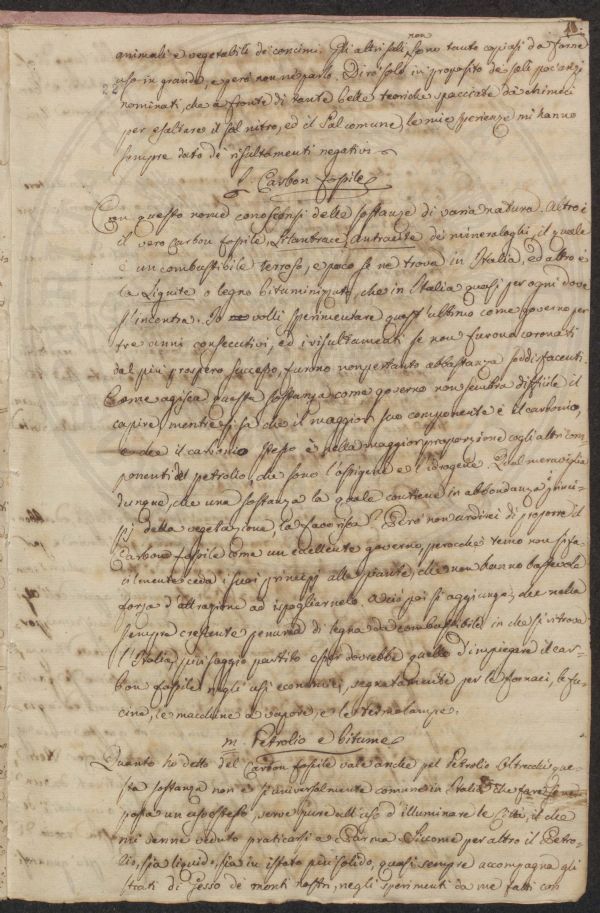 18
animali e vegetabili de concimi. Gli altri sali non sono tanto copiosi da farne
uso in grande, e però non ne parlo. Dirò solo in proposito de sali poc'anzi
nominati, che a fronte di tante belle teoriche spacciate da chimici
per esaltare il sal nitro, ed il Sal comune, le mie sperienze mi hanno
sempre dato de risultamenti negativi.
l. Carbon fossile
Con questo nome conosconsi delle sostanze di varia natura. Altro è
il vero Carbon fossile, Litantrace, Antracite de mineraloghi, il quale
è un combustibile terroso, e poco se ne trova in Italia, ed altro è
la Lignite o legno bituminizzato, che in Italia quasi per ogni dove
s'incontra. Io volli sperimentare quest'ultimo come governo per
tre anni consecutivi, ed i risultamenti se non furono coronati
dal più prospero successo, furono nonpertanto abbastanza soddisfacenti.
Come agisca questa sostanza come governo non sembra difficile il
capire, mentre si sa che il maggior suo componente è il carbonio,
e che il carbonio stesso è nella maggior proporzione cogli altri com
ponenti del petrolio, che sono l'ossigene e l'idrogene. Qual meraviglia
dunque, che una sostanza la quale contiene in abbondanza i princi-
pj della vegetazione, la favorisca? Però non ardirei di proporre il
Carbon fossile come un eccellente governo, perocché temo non sì fa-
cilmente ceda i suoi principj alle piante, che non hanno bastevole
forza d'attrazione ad ispogliarnelo. A ciò poi si aggiunge, che nella
sempre crescente penuria di legna da combustibile in che si ritrova
l'Italia, più saggio partito esser dovrebbe quello d'impiegare il car-
bon fossile negli usi economici, segnatamente per le fornaci, le fu-
cine, le macchine a vapore, e le termolampe.
m. Petrolio e bitume
Quanto ho detto del Carbon fossile vale anche pel Petrolio. Oltrecchè que-
sta sostanza non è sì universalmente comune in Italia che farsene
possa un serve pure all'uso d'illuminare le Città, il che
mi venne veduto praticarsi a Parma. Siccome per altro il Petro-
lio, sia liquido sia in istato più solido, quasi sempre accompagna gli
strati di Gesso de monti nostri, negli sperimenti da me fatti con